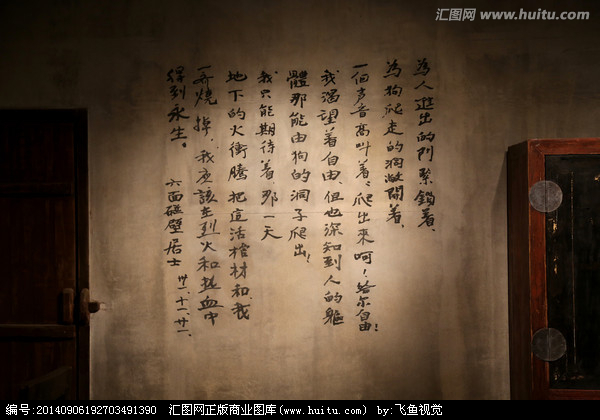 汇图网 www.huitu.com
為人進出的门緊鎖着、
為狗爬走的洞敞開着、
一個声音高叫着：爬出來呵！给尔自由！
我渴望着自由、但也深知到人的軀
體那能由狗的洞子爬出！
我只能期待着、那一天
地下的火衝騰、把這活棺材和我
一齊燒掉、我应該在烈火和热血中
得到永生。
六面碰壁居士
卅一、十一、廿一、
编号:20140906192703491390 汇图网正版商业图库(www.huitu.com) by:飞鱼视觉